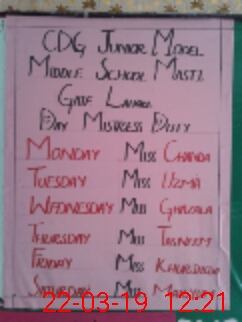 CDG Junior Model
Middle School
Day Mistress Duty
Monday Miss Chanda
Tuesday Miss Uzma
Wednesday Miss
Thursday Miss Tasneem
Friday Miss Khurshid
Saturday Miss
22-03-19 12:21